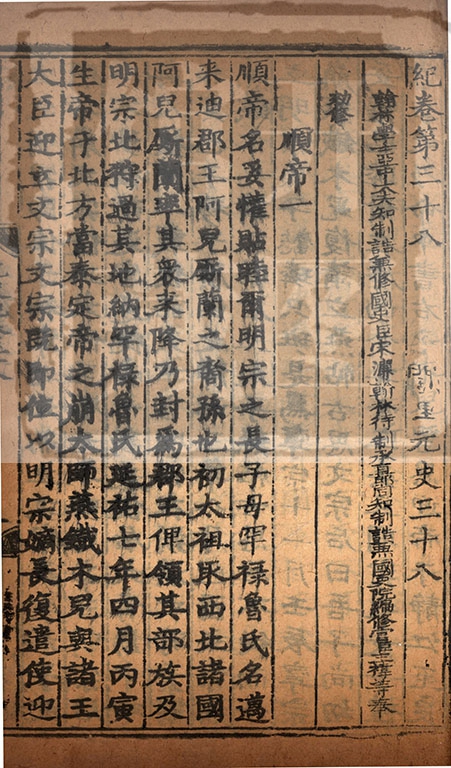 紀卷第三十八 元史三十八
翰林學士亞中大夫知制誥兼修國史臣宋濂翰林待制承直郎同知制誥兼國史院編修官臣王禕等奉
順帝一
順帝名妥懽貼睦爾明宗之長子母罕祿魯氏名邁
來迪郡王阿兒厮蘭之裔孫也初太祖取西北諸國
阿兒厮蘭率其衆來降乃封爲郡王俾領其部族及
明宗北狩過其地納罕祿魯氏延祐七年四月丙寅
生帝于北方當泰定帝之崩太師燕鐵木兒與諸王
大臣迎立文宗文宗既即位以明宗嫡長復遣使迎